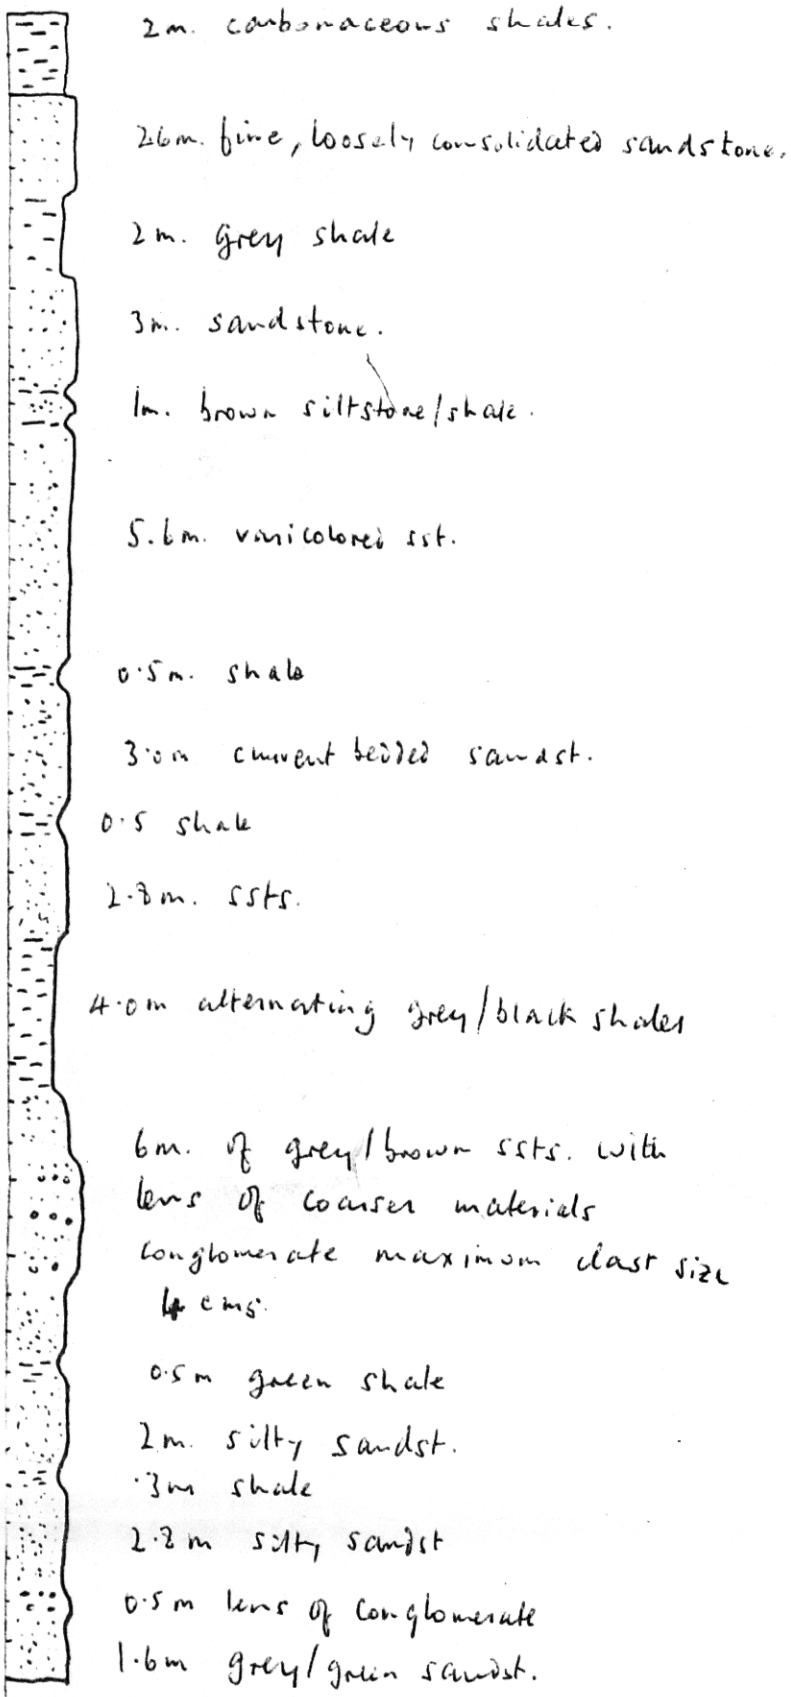 2m. carbonaceous shales.
2.6m. fine, loosely consolidated sandstone.
2m. grey shale
3m. sandstone.
1m. brown siltstone/shale.
5.6m. varicolored sst.
0.5m. shale
3.0m current bedded sandst.
0.5 shale
2.8m. ssts.
4.0m alternating grey/black shales
6m. of grey/brown ssts. with
lens of coarser materials
conglomerate maximum clast size
4 cms.
0.5m green shale
2m. silty sandst.
.3m shale
2.8m silty sandst
0.5m lens of conglomerate
1.6m grey/green sandst.